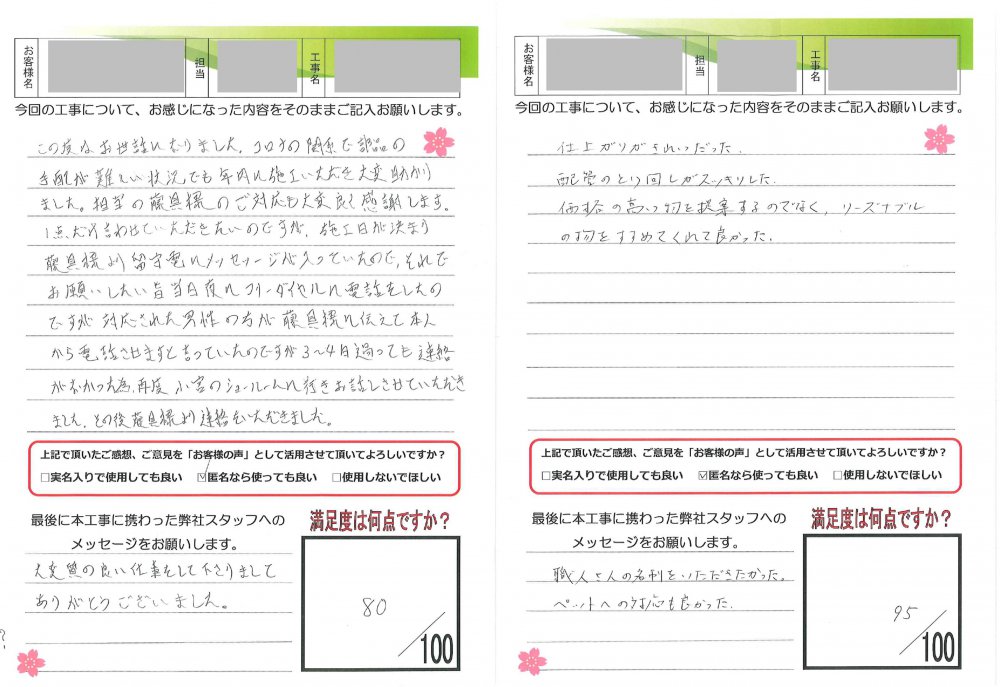 お客様名
担当
工事名
今回の工事について、お感じになった内容をそのままご記入お願いします。
この度はお世話になりました。コロナの関係で部品の
手配が難しい状況でも年内に施工いただき大変助かり
ました。担当の藤具様のご対応も大変良く感謝します。
1点だけ言わせていただきたいのですが、施工日が決まり
藤具様より留守電にメッセージが入っていたので、それで
お願いしたい旨当日夜にフリーダイヤルに電話をしたの
ですが対応された男性の方が藤具様に伝えて本人
から電話させますと言っていたのですが3〜4日過っても連絡
がなかった為、再度小宮のショールームに行きお話しさせていただき
ました。その後藤具様より連絡をいただきました。
上記で頂いたご感想、ご意見を「お客様の声」として活用させて頂いてよろしいですか？
□実名入りで使用しても良い ☑匿名なら使っても良い □使用しないでほしい
最後に本工事に携わった弊社スタッフへの
メッセージをお願いします。
大変質の良い仕事をして下さりまして
ありがとうございました。
満足度は何点ですか？
80
/100
お客様名
担当
工事名
今回の工事について、お感じになった内容をそのままご記入お願いします。
仕上がりがきれいだった．
配管のとり回しがスッキリした．
価格の高い物を提案するのでなく，リーズナブル
の物をすすめてくれて良かった．
上記で頂いたご感想、ご意見を「お客様の声」として活用させて頂いてよろしいですか？
□実名入りで使用しても良い ☑匿名なら使っても良い □使用しないでほしい
最後に本工事に携わった弊社スタッフへの
メッセージをお願いします。
職人さんの名刺をいただきたかった。
ペットへの対応も良かった．
満足度は何点ですか？
95
/100